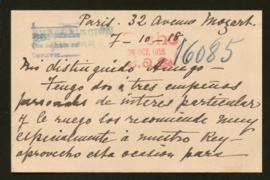 Paris. 32 Avenue Mozart.
7-10-18
OCT. 1918
16085
Mi distinguido Amigo-
Tengo dos o tres empeños
personales de interes particular
y le ruego los recomiende muy
especialmente a nuestro Rey-
aprovecho esta ocasion para